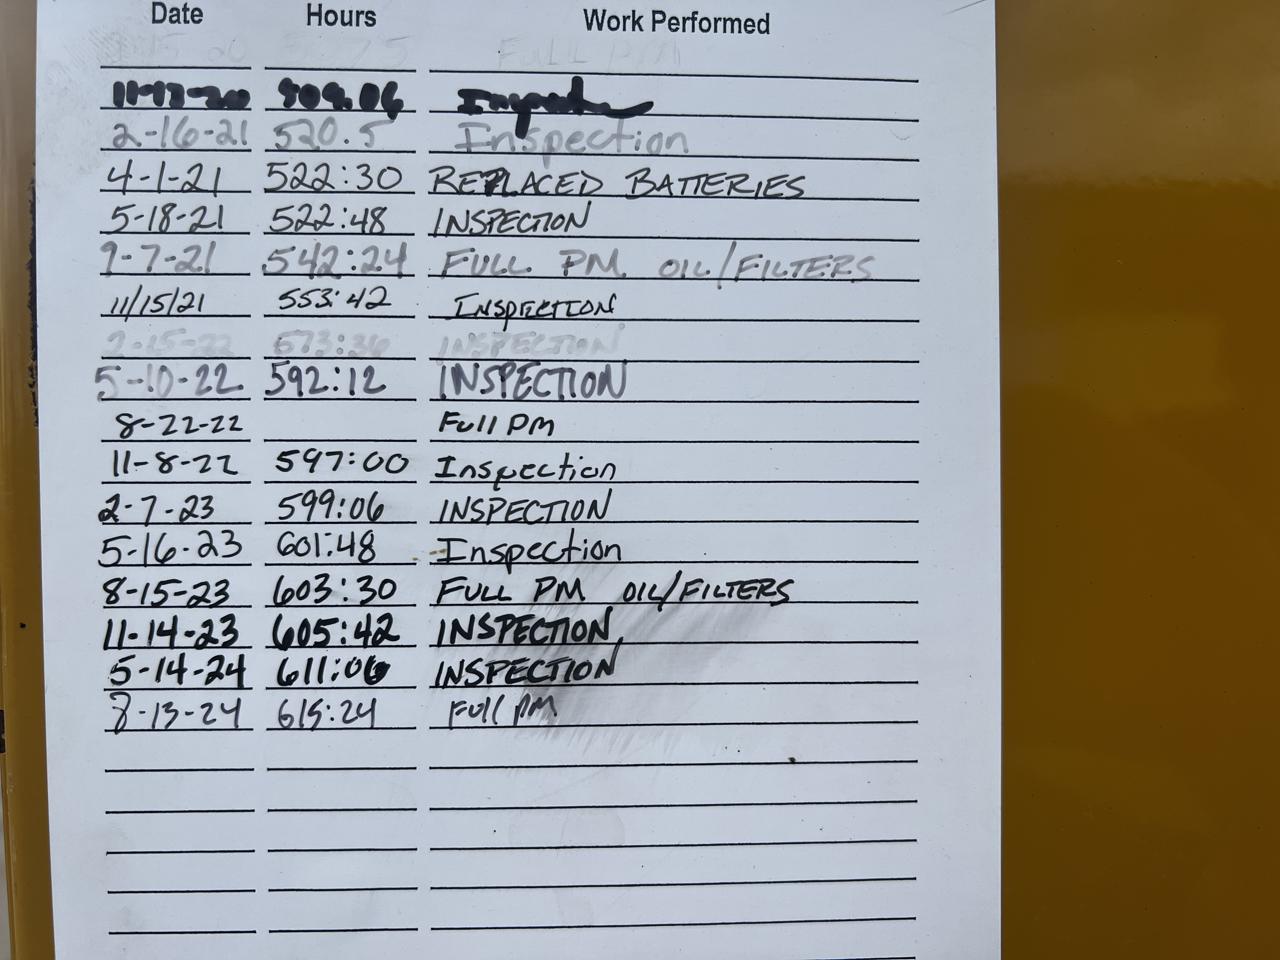 Date Hours Work Performed
FULL PM
11-17-20 509.06
2-16-21 520.5 Inspection
4-1-21 522:30 REPLACED BATTERIES
5-18-21 522:48 INSPECTION
9-7-21 542:24 FULL PM OIL/FILTERS
11/15/21 553:42 INSPECTION
2-15-22 573:36 INSPECTION
5-10-22 592:12 INSPECTION
8-22-22 Full PM
11-8-22 597:00 Inspection
2-7-23 599:06 INSPECTION
5-16-23 601:48 Inspection
8-15-23 603:30 FULL PM OIL/FILTERS
11-14-23 605:42 INSPECTION
5-14-24 611:06 INSPECTION
8-13-24 615:24 Full PM